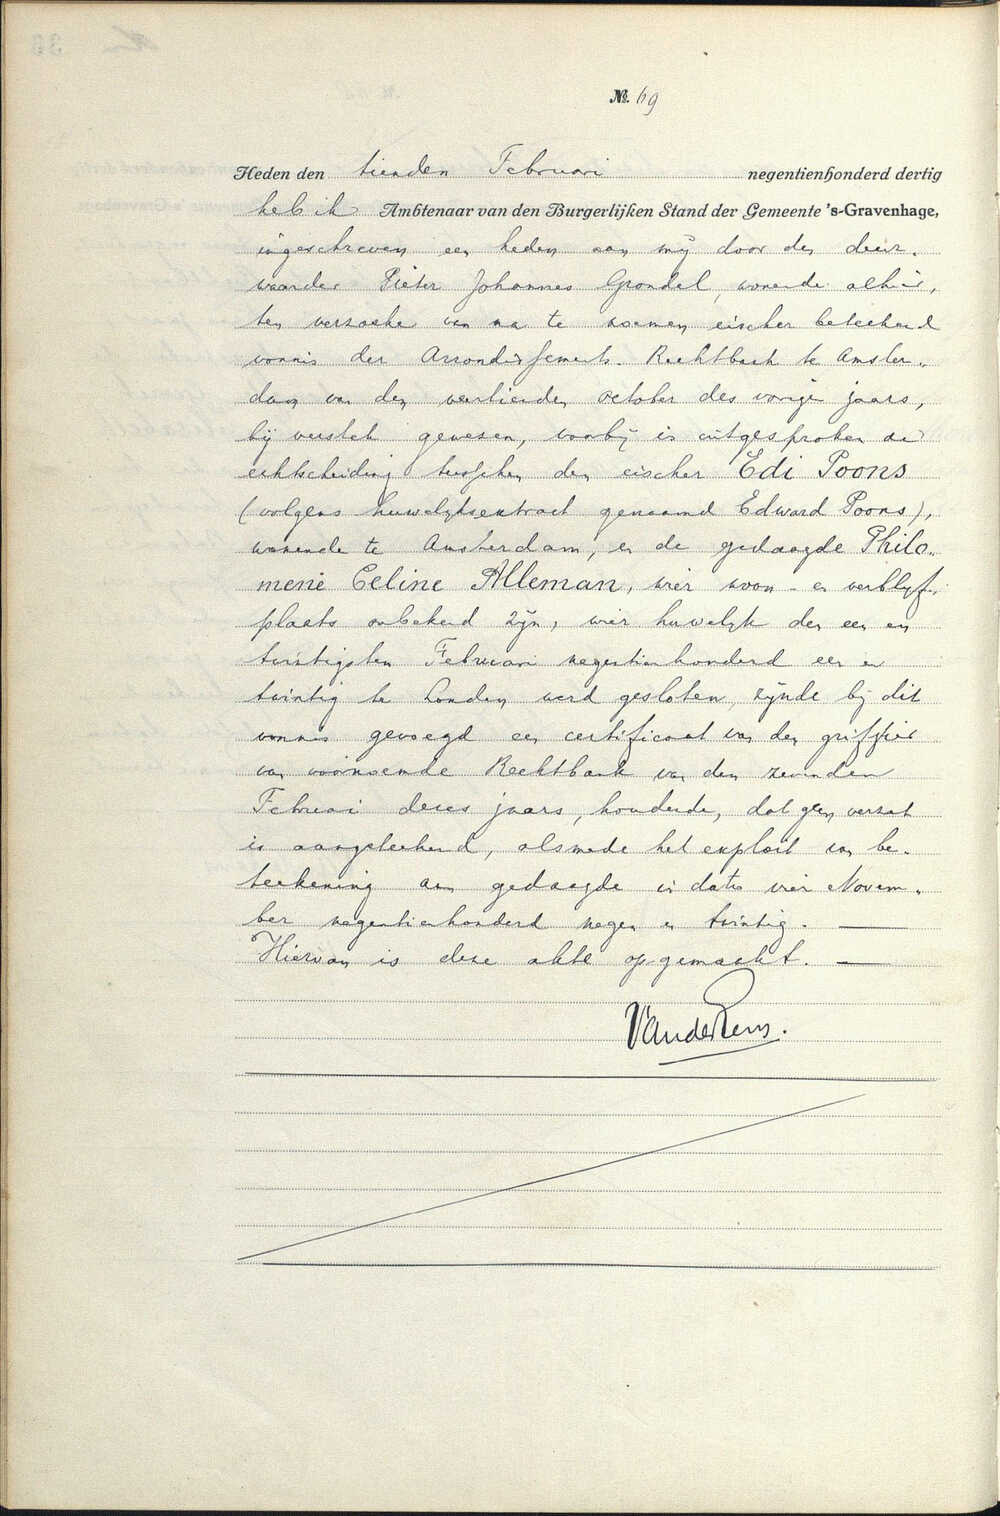 № 69
Heden den tienden Februari negentienhonderd dertig
heb ik Ambtenaar van den Burgerlijken Stand der Gemeente 's-Gravenhage,
ingeschreven een heden aan mij door den deur-
waarder Pieter Johannes Grondel, wonende alhier,
ten verzoeke van na te noemen eischer beteekend
vonnis der Arrondissements-Rechtbank te Amster-
dam van den veertienden october des vorigen jaars,
bij verstek gewezen, waarbij is uitgesproken de
echtscheiding tusschen den eischer Edi Poons
(volgens huwelijksextract genaamd Edward Poons),
wonende te Amsterdam, en de gedaagde Philo-
mene Celine Alleman, wier woon- en verblijf-
plaats onbekend zijn, wier huwelijk den een en
twintigsten Februari negentienhonderd een en
twintig te Londen werd gesloten, zijnde bij dit
vonnis gevoegd een certificaat van den griffier
van voornoemde Rechtbank van den zevenden
Februari dezes jaars, houdende, dat geen verzet
is aangeteekend, alsmede het exploit van be-
teekening aan gedaagde in dato vier Novem-
ber negentienhonderd negen en twintig.
Hiervan is deze akte opgemaakt.